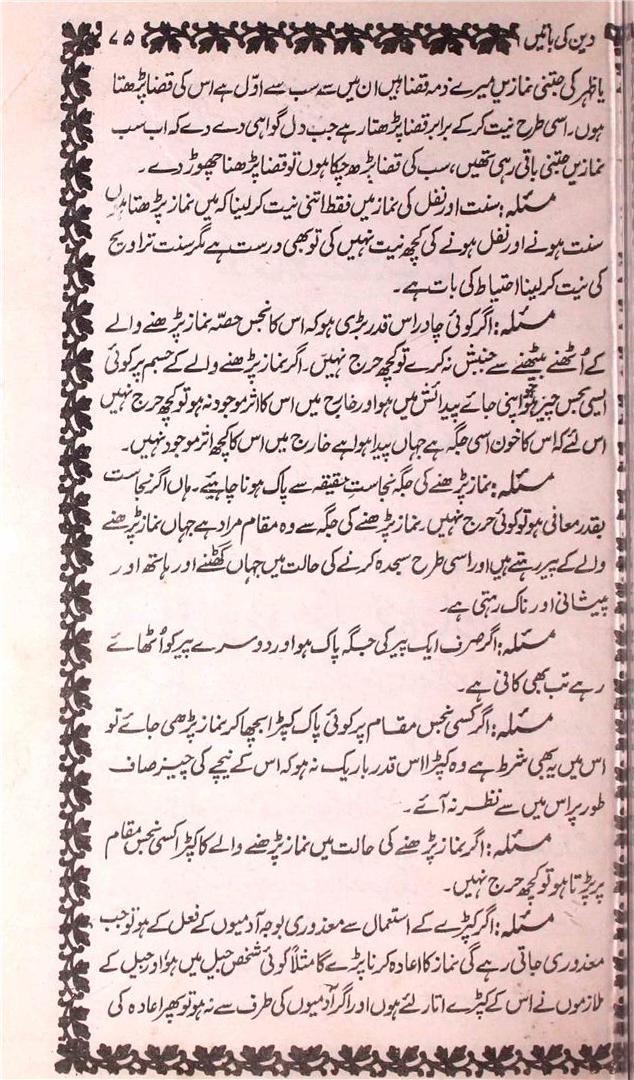 دین کی باتیں ۷۵
یا ظہر کی جتنی نمازیں میرے ذمہ قضا ہیں ان میں سے سب سے اوّل ہے اس کی قضا پڑھتا
ہوں۔ اسی طرح نیت کر کے برابر قضا پڑھتا رہے جب دل گواہی دے دے کہ اب سب
نمازیں جتنی باقی رہی تھیں، سب کی قضا پڑھ چکا ہوں تو قضا پڑھنا چھوڑ دے۔
مسئلہ: سنت اور نفل کی نماز میں فقط اتنی نیت کر لینا کہ میں نماز پڑھتا ہوں
سنت ہونے اور نفل ہونے کی کچھ نیت نہیں کی تو بھی درست ہے مگر سنت تراویح
کی نیت کر لینا احتیاط کی بات ہے۔
مسئلہ: اگر کوئی چادر اس قدر بڑی ہو کہ اس کا نجس حصّہ نماز پڑھنے والے
کے اُٹھنے بیٹھنے سے جنبش نہ کرے تو کچھ حرج نہیں۔ اگر نماز پڑھنے والے کے جسم پر کوئی
ایسی نجس چیز ہو جو اپنی جائے پیدائش میں ہو اور خارج میں اس کا اثر موجود نہ ہو تو کچھ حرج نہیں
اس لئے کہ اس کا خون اسی جگہ ہے جہاں پیدا ہوا ہے خارج میں اس کا کچھ اثر موجود نہیں۔
مسئلہ: نماز پڑھنے کی جگہ نجاست حقیقہ سے پاک ہونا چاہیئے۔ ہاں اگر نجاست
بقدر معافی ہو تو کوئی حرج نہیں۔ نماز پڑھنے کی جگہ سے وہ مقام مراد ہے جہاں نماز پڑھنے
والے کے پیر رہتے ہیں اور اسی طرح سجدہ کرنے کی حالت میں جہاں گھٹنے اور ہاتھ اور
پیشانی اور ناک رہتی ہے۔
مسئلہ: اگر صرف ایک پیر کی جگہ پاک ہو اور دوسرے پیر کو اُٹھائے
رہے تب بھی کافی ہے۔
مسئلہ: اگر کسی نجس مقام پر کوئی پاک کپڑا بچھا کر نماز پڑھی جائے تو
اس میں یہ بھی شرط ہے وہ کپڑا اس قدر باریک نہ ہو کہ اس کے نیچے کی چیز صاف
طور پر اس میں سے نظر نہ آئے۔
مسئلہ: اگر نماز پڑھنے کی حالت میں نماز پڑھنے والے کا کپڑا کسی نجس مقام
پر پڑتا ہو تو کچھ حرج نہیں۔
مسئلہ: اگر کپڑے کے استعمال سے معذوری بوجہ آدمیوں کے فعل کے ہو تو جب
معذوری جاتی رہے گی نماز کا اعادہ کرنا پڑے گا مثلاً کوئی شخص جیل میں ہو اور جیل کے
ملازموں نے اس کے کپڑے اتار لئے ہوں اور اگر آدمیوں کی طرف سے نہ ہو تو پھر اعادہ کی